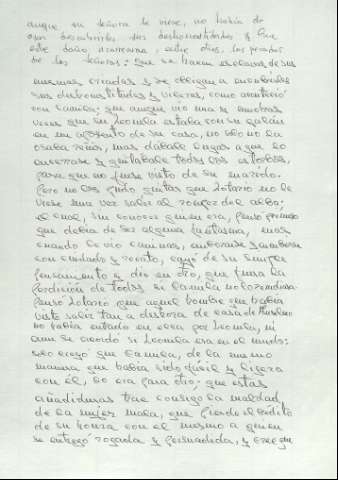 aunque su señora la viese, no había de
osar descubrirla. Sus deshonestidades y
este daño acarrean, entre otros, los pecados
de las señoras: que se hacen esclavas de sus
mesmas criadas y se obligan a encubrirles
sus deshonestidades y vilezas, como aconteció
con Camila; que aunque vio una y muchas
veces que su Leonela estaba con su galán
en un aposento de su casa, no sólo no la
osaba reñir, mas dábale lugar a que lo
encerrase y quitábale todos los estorbos,
para que no fuese visto de su marido.
Pero no los pudo quitar que Lotario no le
viese una vez salir al romper del alba;
el cual, sin conocer quien era, pensó primero
que debía de ser alguna fantasma, mas
cuando le vio caminar, embozarse y encubrirse
con cuidado y recato, cayó de su simple
pensamiento y dio en otro, que fuera la
perdición de todos si Camila no lo remediara.
Pensó Lotario que aquel hombre que había
visto salir tan a deshora de casa de Anselmo
no había entrado en ella por Leonela, ni
aun se acordó si Leonela era en el mundo;
sólo creyó que Camila, de la misma
manera que había sido fácil y ligera
con él, lo era para otro; que estas
añadiduras trae consigo la maldad
de la mujer mala, que pierde el crédito
de su honra con el mesmo a quien
se entregó rogada y persuadida, y cree que